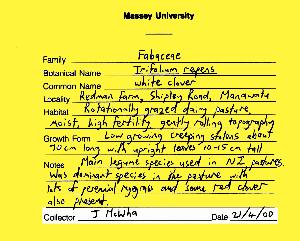 Massey University
Family Fabaceae
Botanical Name Trifolium repens
Common Name white clover
Locality Redman Farm, Shipley Road, Manawatu
Habitat Rotationally grazed dairy pasture
Moist, high fertility, gently rolling topography
Growth Form Low growing creeping stolons about
70cm long with upright leaves 10-15 cm tall
Notes Main legume species used in NZ pastures.
Was dominant species in the pasture with
lots of perennial ryegrass and some red clover
also present.
Collector J McWha Date 21/4/00